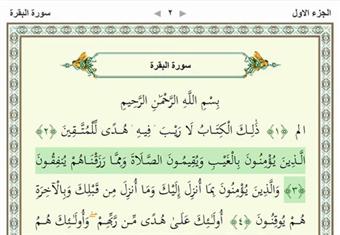 الجزء الاول ◀ ٢ ▶ سورة البقرة
سورة البقرة
بِسْمِ اللَّهِ الرَّحْمَٰنِ الرَّحِيمِ
الم ﴿١﴾ ذَٰلِكَ الْكِتَابُ لَا رَيْبَ ۛ فِيهِ ۛ هُدًى لِّلْمُتَّقِينَ ﴿٢﴾
الَّذِينَ يُؤْمِنُونَ بِالْغَيْبِ وَيُقِيمُونَ الصَّلَاةَ وَمِمَّا رَزَقْنَاهُمْ يُنفِقُونَ
﴿٣﴾ وَالَّذِينَ يُؤْمِنُونَ بِمَا أُنزِلَ إِلَيْكَ وَمَا أُنزِلَ مِن قَبْلِكَ وَبِالْآخِرَةِ
هُمْ يُوقِنُونَ ﴿٤﴾ أُولَٰئِكَ عَلَىٰ هُدًى مِّن رَّبِّهِمْ ۖ وَأُولَٰئِكَ هُمُ